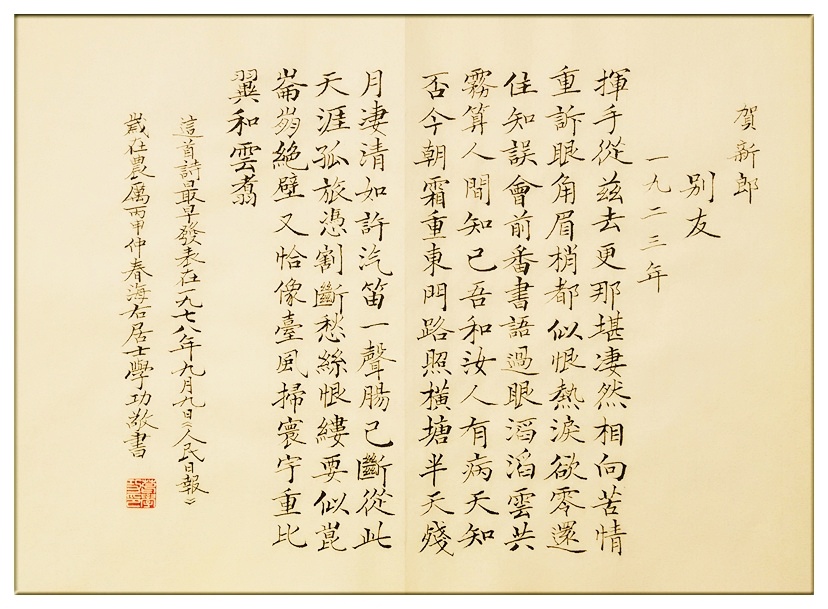 賀新郎
別友
一九二三年
揮手從茲去更那堪凄然相向苦情
重訴眼角眉梢都似恨熱淚欲零還
住知誤會前番書語過眼滔滔雲共
霧算人間知己吾和汝人有病天知
否今朝霜重東門路照橫塘半天殘
月凄清如許汽笛一聲腸已斷從此
天涯孤旅憑割斷愁絲恨縷要似崑
崙崩絕壁又恰像臺風掃寰宇重比
翼和雲翥
這首詩最早發表在一九七八年九月九日《人民日報》
歲在農曆丙申仲春海右居士學功敬書